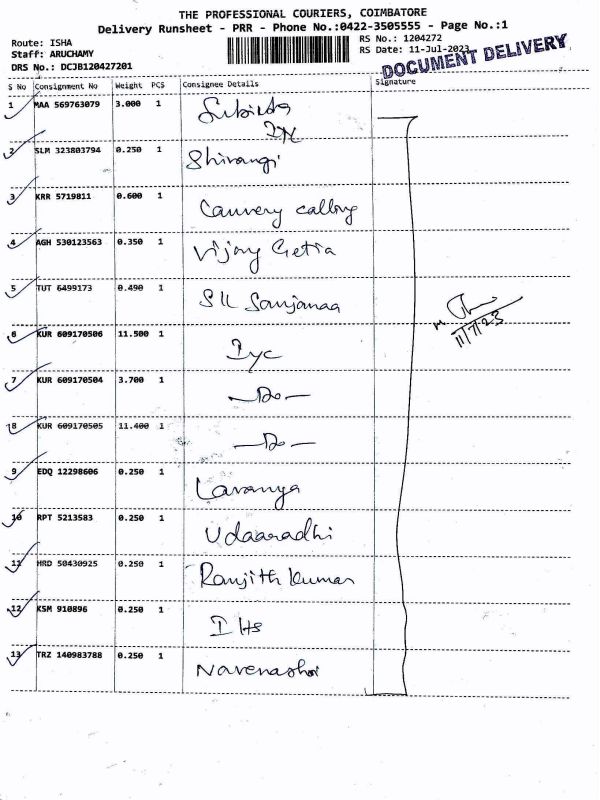 THE PROFESSIONAL COURIERS, COIMBATORE
Delivery Runsheet - PRR - Phone No.:0422-3505555 - Page No.:1
Route: ISHA
Staff: ARUCHAMY
DRS No.: DCJB120427201
RS No.: 1204272
RS Date: 11-Jul-2023
DOCUMENT DELIVERY
S No Consignment No Weight PCS Consignee Details Signature
1 MAA 569763079 3.000 1
2 SLM 323803794 0.250 1 Shivangi
3 KRR 5719811 0.600 1 Cauvery calling
4 AGH 530123563 0.350 1 Vijay
5 TUT 6499173 0.490 1 Sanjanaa
11/7/23
6 KUR 609170506 11.500 1 Iyc
7 KUR 609170504 3.700 1 —Do—
8 KUR 609170505 11.400 1 —Do—
9 EDQ 12298606 0.250 1 Lavanya
10 RPT 5213583 0.250 1 Udaaradhi
11 HRD 50430925 0.250 1 Ranjith kumar
12 KSM 910896 0.250 1 I Hs
13 TRZ 140983788 0.250 1